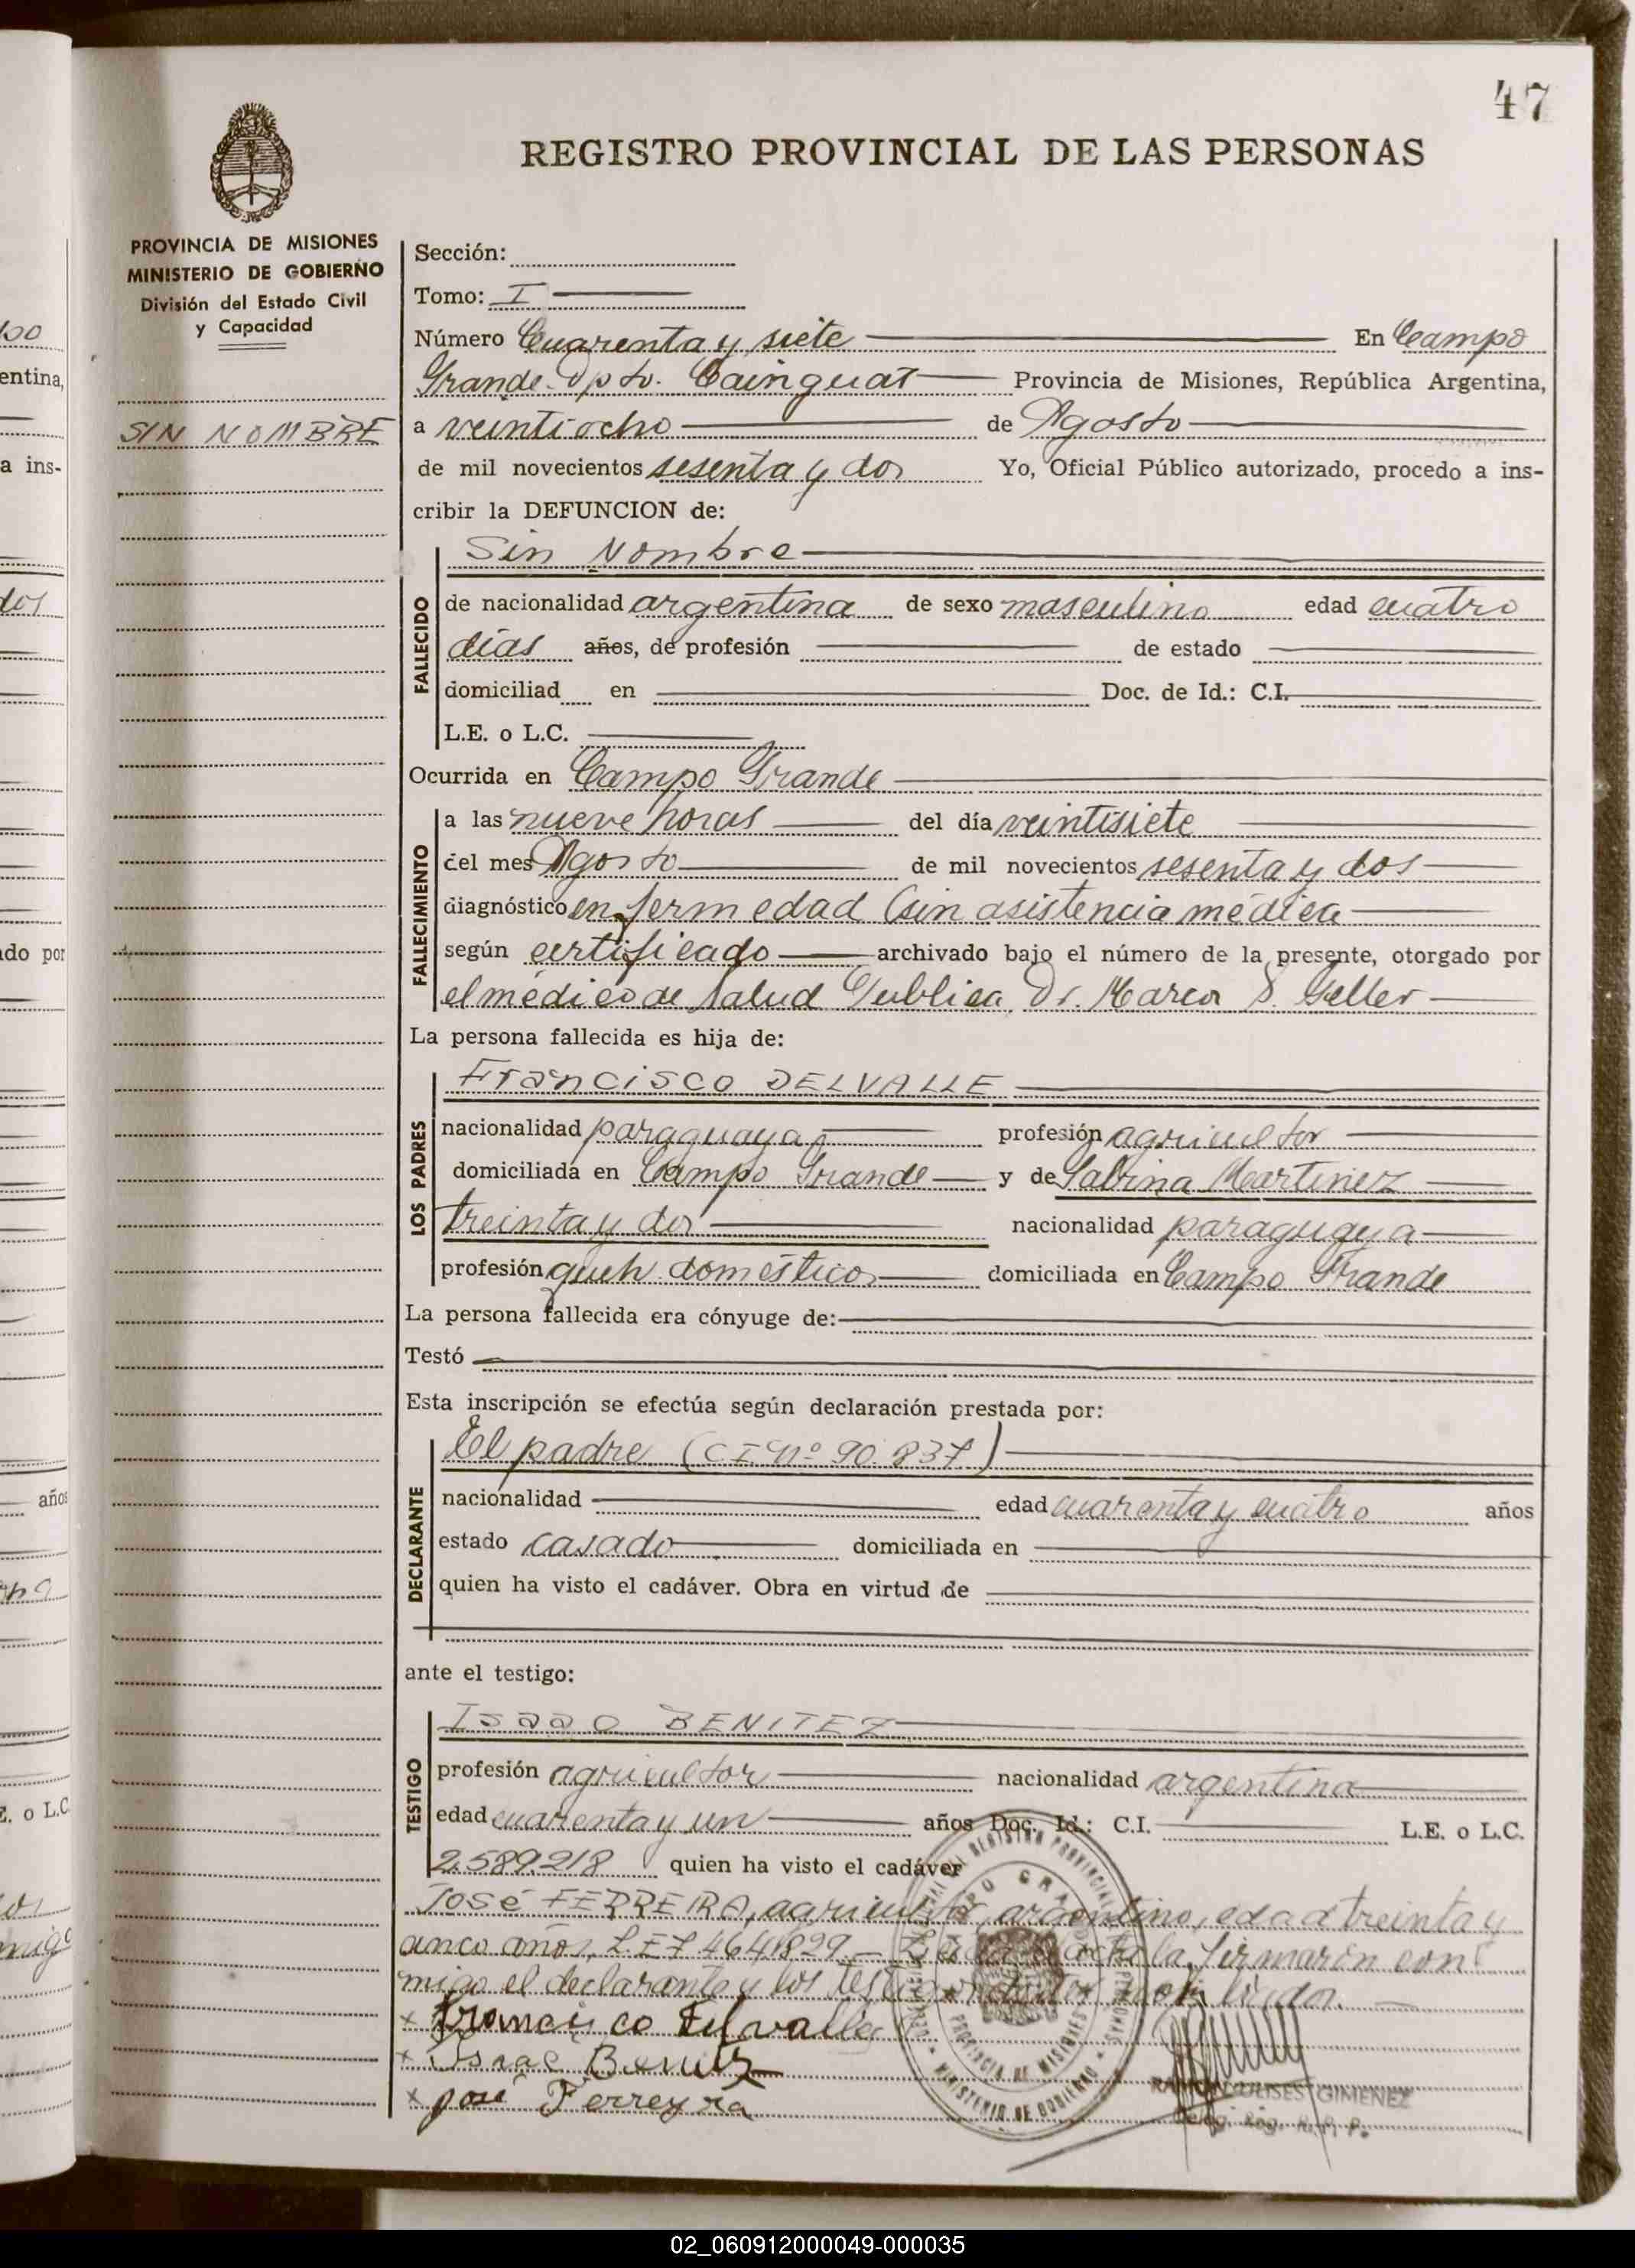 47
REGISTRO PROVINCIAL DE LAS PERSONAS
PROVINCIA DE MISIONES
MINISTERIO DE GOBIERNO
División del Estado Civil
y Capacidad
SIN NOMBRE
Sección:
Tomo: I
Número Cuarenta y siete En Campo
Grande Dpto. Cainguas Provincia de Misiones, República Argentina,
a veintiocho de Agosto
de mil novecientos sesenta y dos Yo, Oficial Público autorizado, procedo a ins-
cribir la DEFUNCION de:
Sin Nombre
FALLECIDO
de nacionalidad argentina de sexo masculino edad cuatro
días años, de profesión de estado
domiciliad en Doc. de Id.: C.I.
L.E. o L.C.
Ocurrida en Campo Grande
FALLECIMIENTO
a las nueve horas del día veintisiete
del mes Agosto de mil novecientos sesenta y dos
diagnóstico enfermedad (sin asistencia médica
según certificado archivado bajo el número de la presente, otorgado por
el médico de Salud Publica, Dr. Marcos S. Geller
La persona fallecida es hija de:
Francisco DELVALLE
LOS PADRES
nacionalidad paraguaya profesión agricultor
domiciliada en Campo Grande y de Sabrina Martinez
treinta y dos nacionalidad paraguaya
profesión queh. domésticos domiciliada en Campo Grande
La persona fallecida era cónyuge de:
Testó
Esta inscripción se efectúa según declaración prestada por:
El padre (C.I. nº 90.837)
DECLARANTE
nacionalidad edad cuarenta y cuatro años
estado casado domiciliada en
quien ha visto el cadáver. Obra en virtud de
ante el testigo:
Isaac BENITEZ
TESTIGO
profesión agricultor nacionalidad argentina
edad cuarenta y un años Doc. Id.: C.I. L.E. o L.C.
2.589.218 quien ha visto el cadáver
José FERREIRA, agricultor, argentino, edad treinta y
cinco años, L.E. 7.464.829.- Leída el acta la firmaron con-
migo el declarante y los testigos
x Francisco Delvalle
x Isaac Benitez
x José Ferreyra
RAMON ULISES GIMENEZ
Deleg. Reg. R. P. P.
CAMPO GRANDE
PROVINCIA DE MISIONES
MINISTERIO DE GOBIERNO
02_060912000049-000035